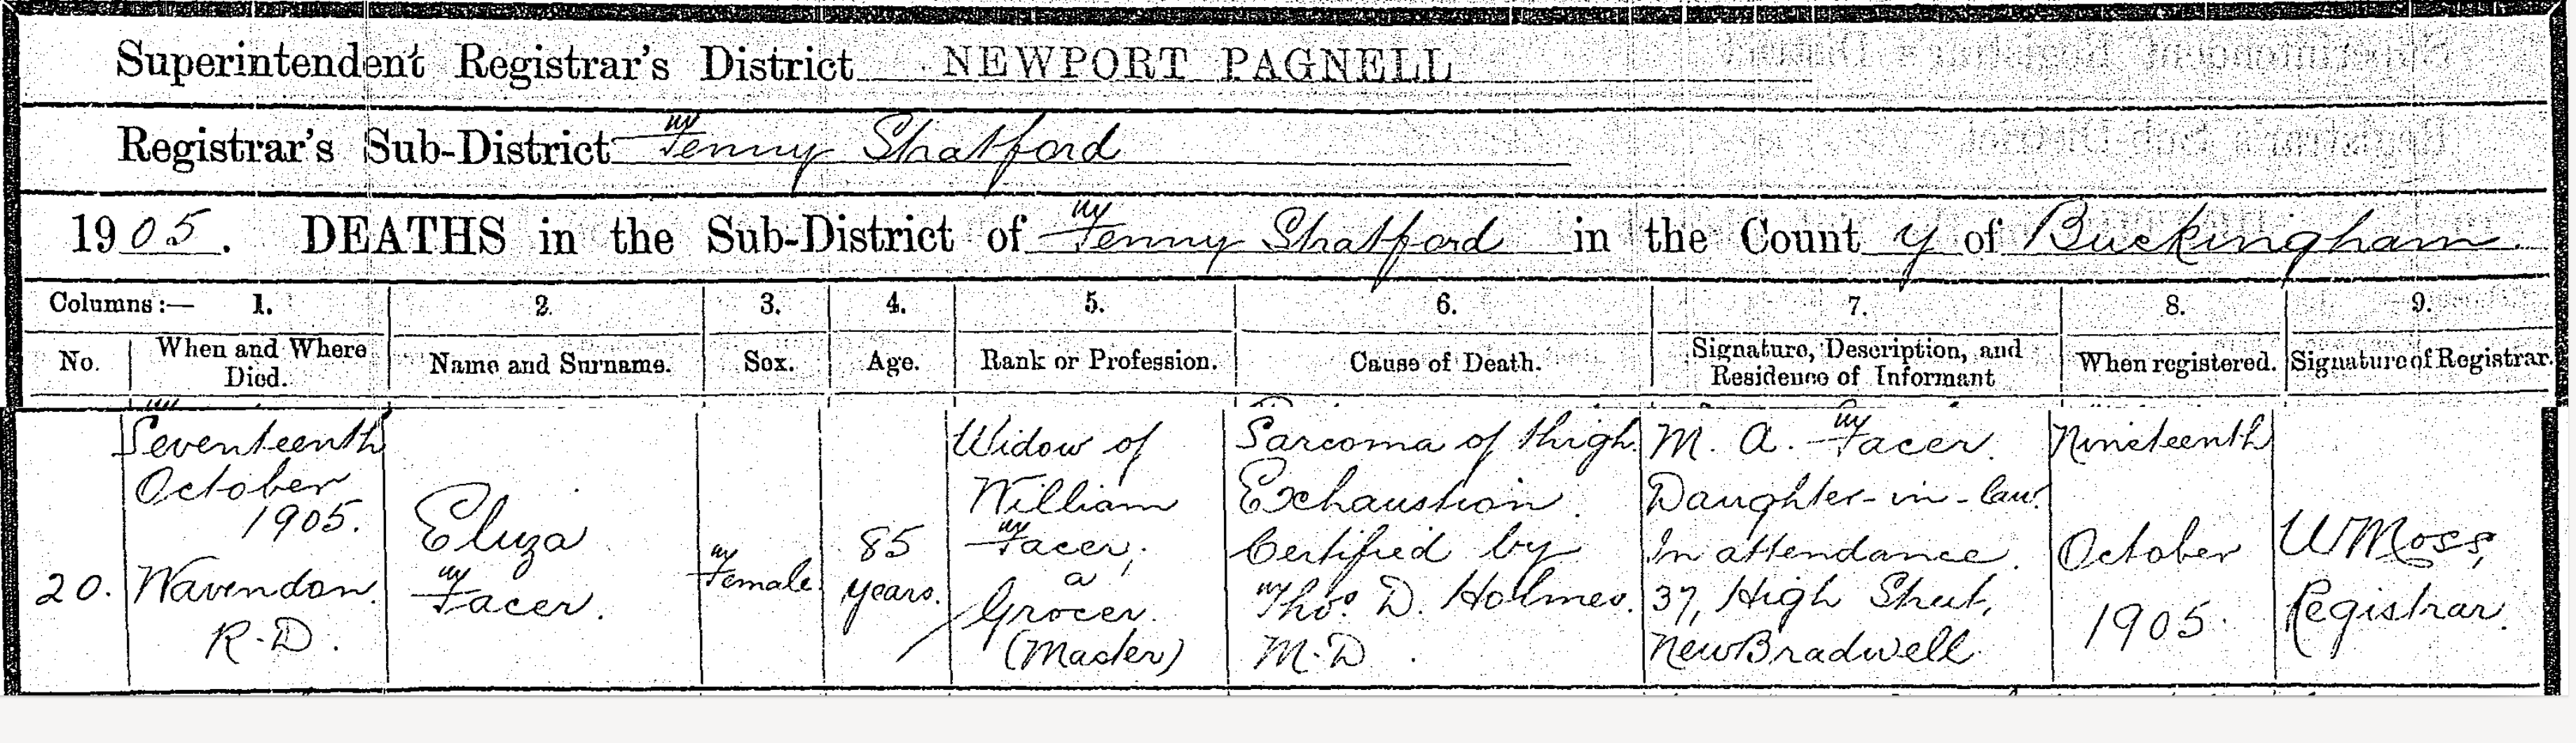 Superintendent Registrar's District NEWPORT PAGNELL
Registrar's Sub-District Fenny Stratford
1905. DEATHS in the Sub-District of Fenny Stratford in the County of Buckingham
Columns:— 1. 2. 3. 4. 5. 6. 7. 8. 9.
No. When and Where Died. Name and Surname. Sex. Age. Rank or Profession. Cause of Death. Signature, Description, and Residence of Informant When registered. Signature of Registrar.
20.
Seventeenth
October
1905.
Wavendon.
R.D.
Eliza
Facer.
Female.
85
years.
Widow of
William
Facer,
a
Grocer.
(Master)
Sarcoma of thigh.
Exhaustion.
Certified by
Thos. D. Holmes.
M.D.
M. A. Facer.
Daughter-in-law.
In attendance.
37, High Street,
New Bradwell.
Nineteenth
October
1905.
W Moss,
Registrar.